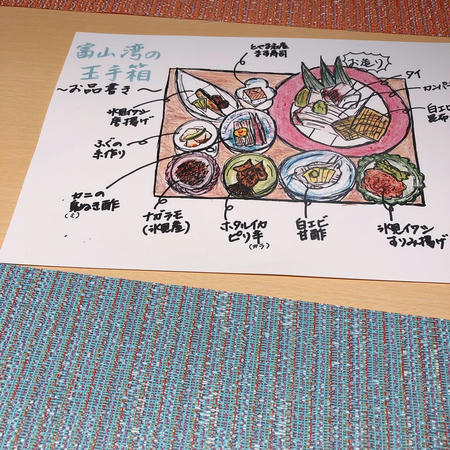 富山湾の
玉手箱
～お品書き～
とやま名産
ます寿司
お造り
タイ
白エビ
昆布
氷見イワシ
唐揚げ
ふぐの
糸作り
カニの
黄ぬき酢
ナガラモ
(氷見産)
ホタルイカ
ピリ辛
白エビ
甘酢
氷見イワシ
すりみ揚げ